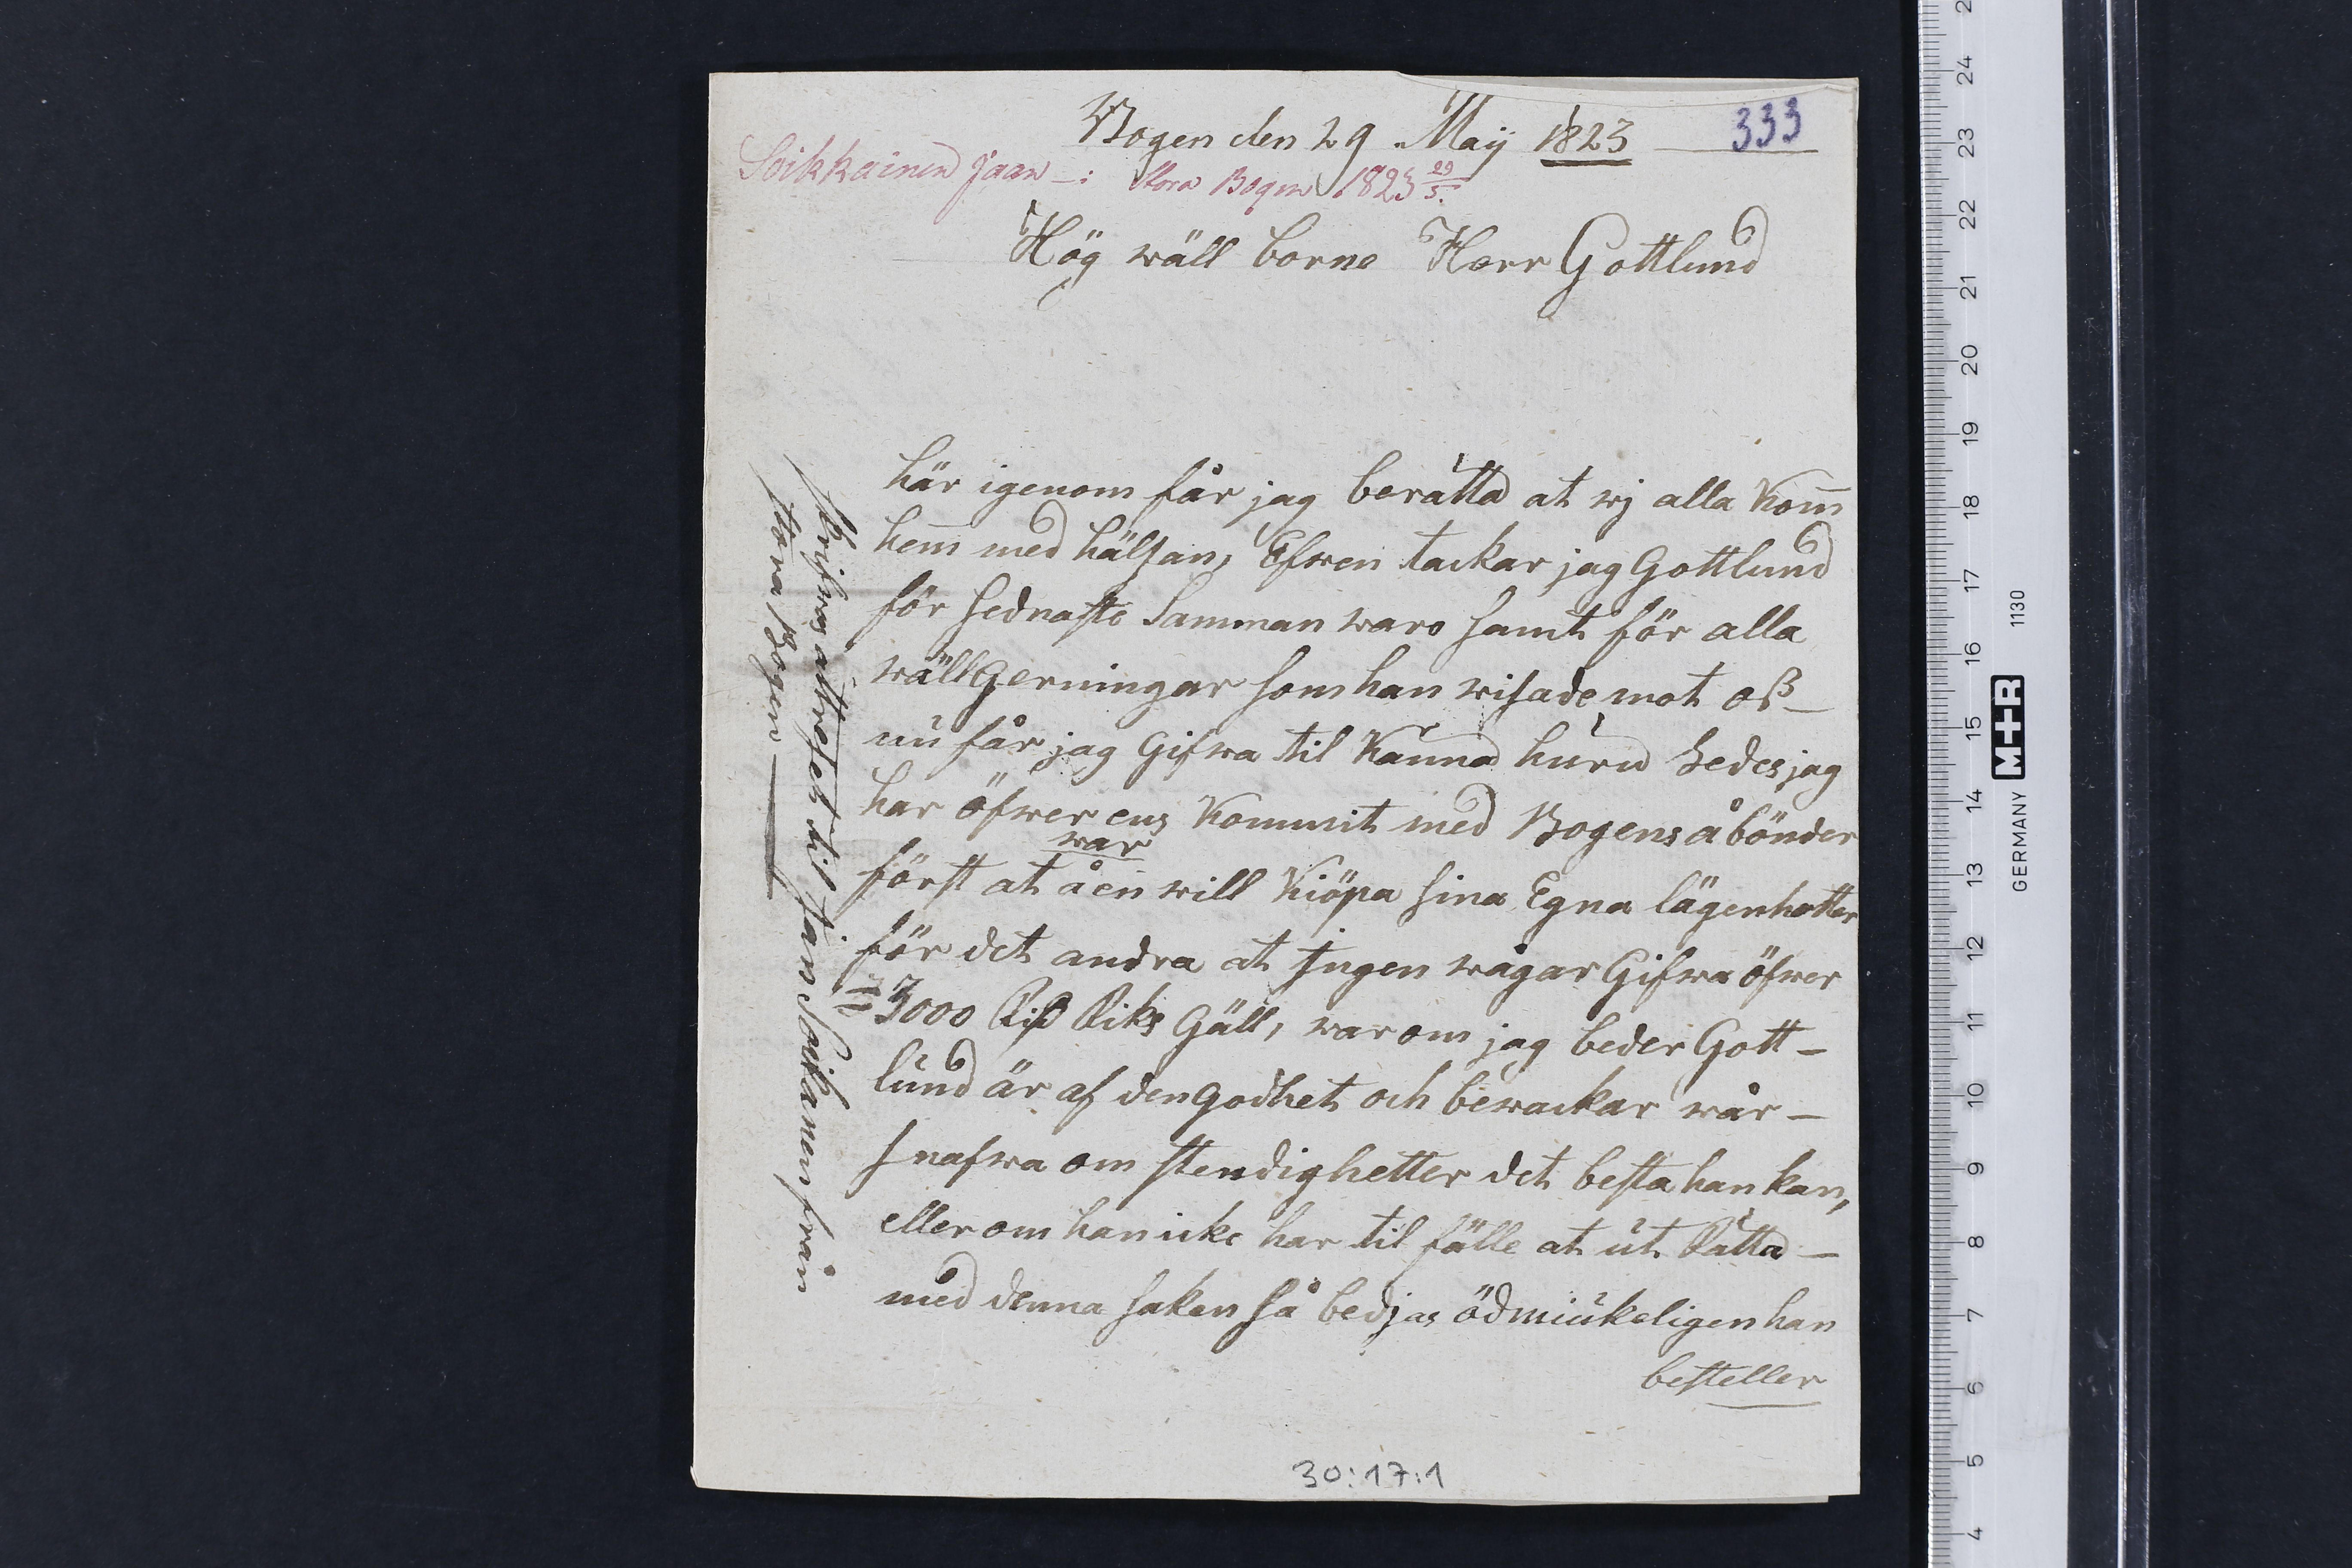 Bogen den 29 Maÿ 1823
333
Soikkainen Jaan —: Stora Bogen 1823 29/5.
Hög wäll borne Herr Gottlund
här igenom får jag berätta at wj alla Kom̅
hem̅ med hälsan, Efwen tackar jag Gottlund
för sednaste Samman waro samt för alla
wällgerningar som han wisade mot oß_
nu får jag Gifwa til Känna huru Ledes jag
har öfwer ens Kommit med Bogens åbönder
war
först at å en will Kiöpa sina Egna lägenhetter
för det andra at Ingen wågar Gifwa öfwer
3000 RiD Riks Gäll, war om jag beder Gott-
lund är af den godhet och bewackar wår-
snafwa om stendighetter det besta han kan,
eller om han icke har til fälle at ut Rätta —
med denna saken så bedjas ödmiukeligen han
besteller
skrifwes attresset til Jan Soikainen från
stora Bogen —
30:17:1
GERMANY M+R 1130
24
23
22
21
20
19
18
17
16
15
14
13
12
11
10
9
8
7
6
5
4